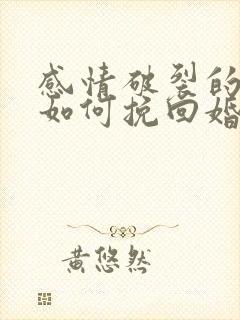 感情破裂的
如何挽回婚
黄悠然